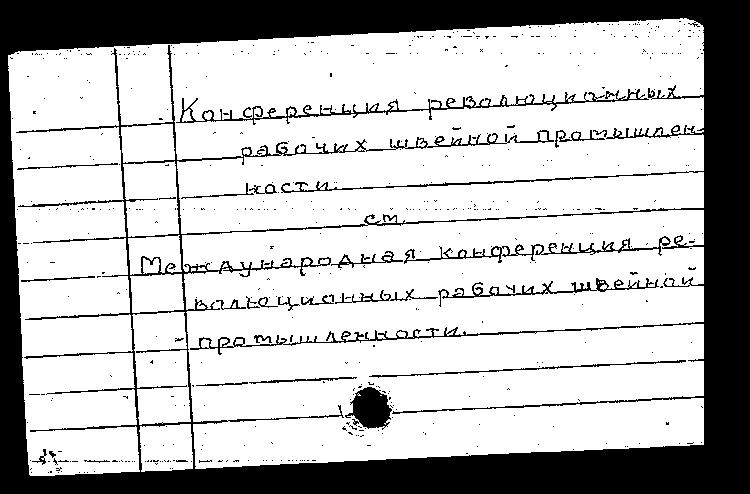 Конференция революционных
рабочих швейной промышлен-
ности.
см.
Международная конференция ре-
волюционных рабочих швейной
промышленности.